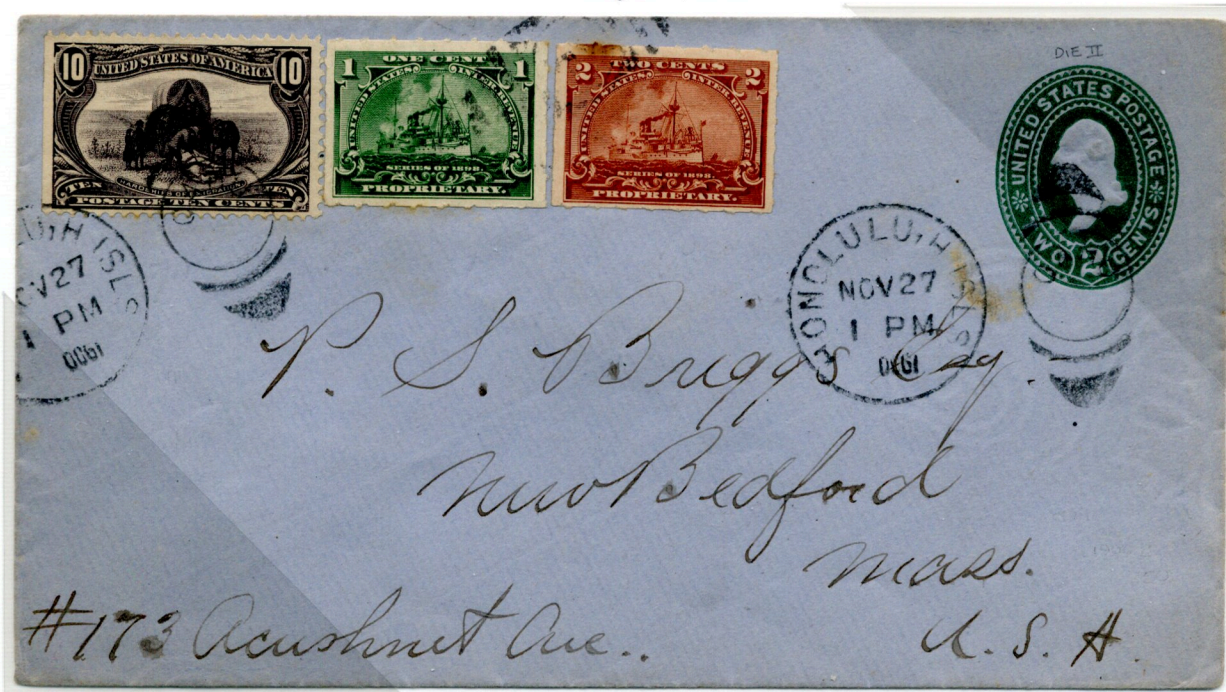 DIE II
10 UNITED STATES OF AMERICA 10
HARDSHIPS OF EMIGRATION
TEN TEN
POSTAGE TEN CENTS
1 ONE CENT 1
UNITED STATES INTER. REVENUE
SERIES OF 1898.
PROPRIETARY.
2 TWO CENTS 2
UNITED STATES INTER. REVENUE
SERIES OF 1898.
PROPRIETARY.
UNITED STATES POSTAGE
TWO 2 CENTS
LU, H ISLS
OV 27
1 PM
HONOLULU, H ISLS
NOV 27
1 PM
P. S. Briggs Esq.
New Bedford
Mass.
#173 Acushnet Ave.. U. S. A.